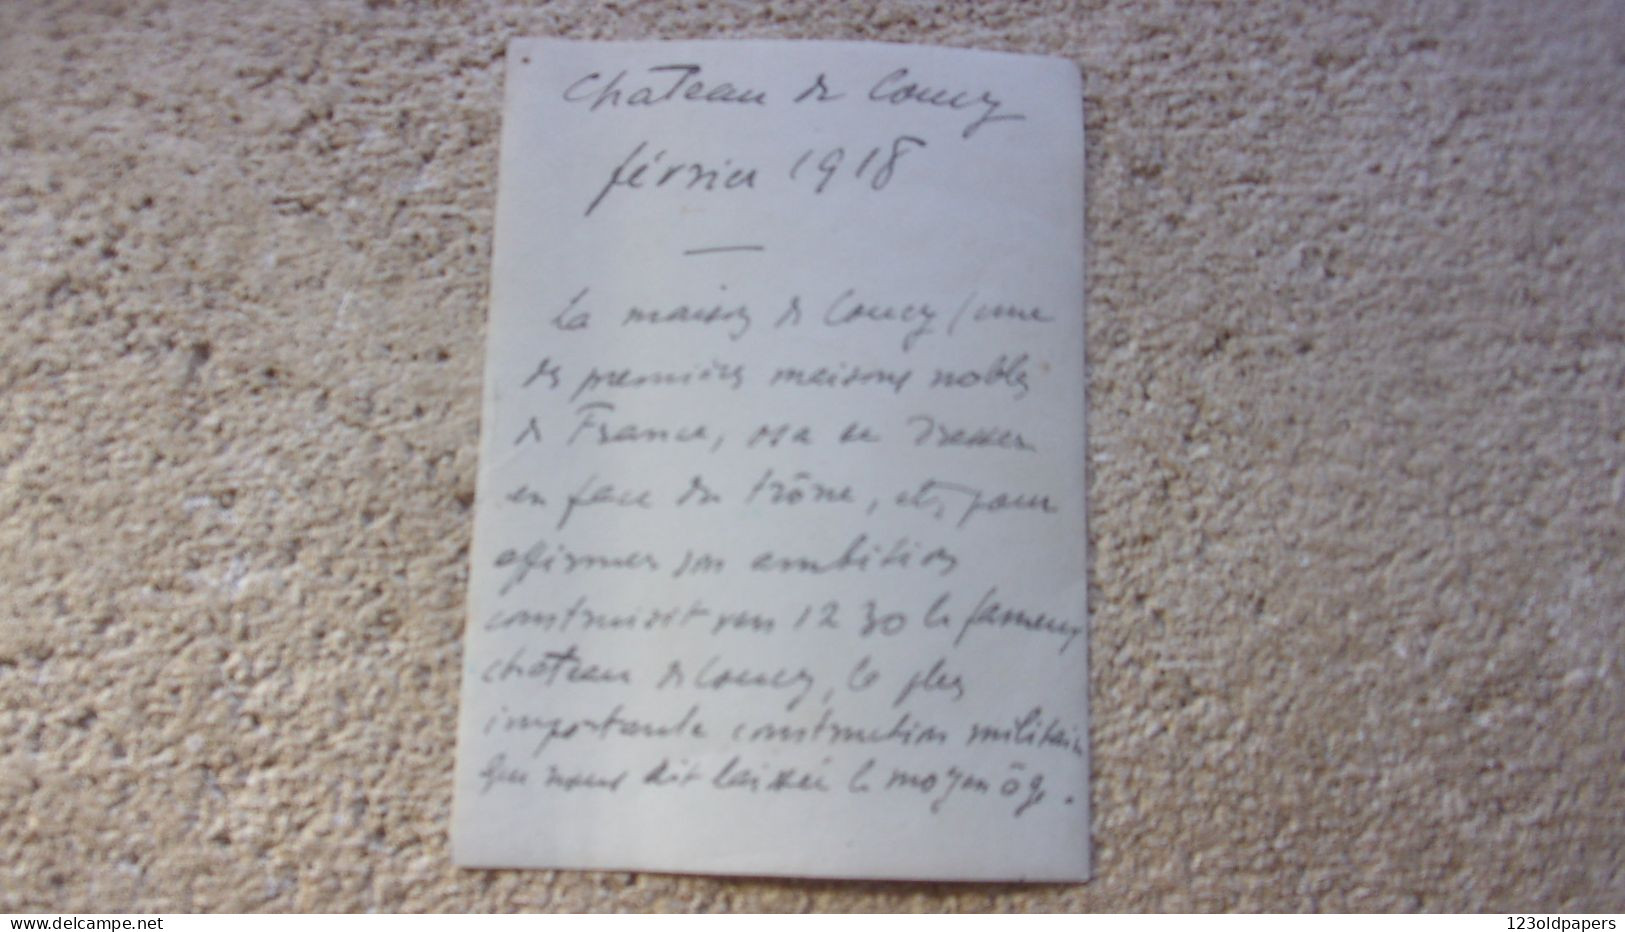 Chateau de Coucy
février 1918
La maison de Coucy (une
des premières maisons nobles
de France, osa se dresser
en face du trône, et, pour
affirmer son ambition
construisit vers 1230 le fameux
chateau de Coucy, le plus
importante construction militaire
que nous ait laissée le moyen âge.
www.delcampe.net
123oldpapers